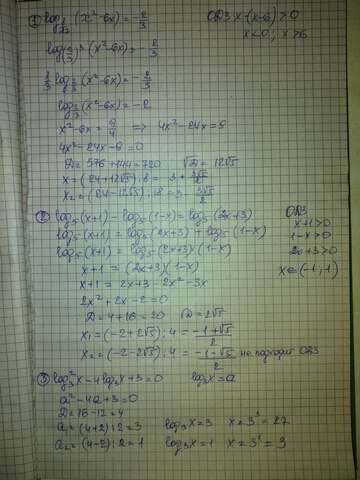 ① log 8/27 (x²-6x) = -2/3 ОДЗ x(x-6)>0
log(2/3)³ (x²-6x) = -2/3 x<0, x>6
1/3 log 2/3 (x²-6x) = -2/3
log 2/3 (x²-6x) = -2
x²-6x = 9/4 => 4x²-24x=9
4x²-24x-9=0
D=576+144=720 √D=12√5
x₁=(24+12√5):8=3+3√5/2
x₂=(24-12√5):8=3-3√5/2
② log₅(x+1)-log₅(1-x)=log₅(2x+3) ОДЗ
log₅(x+1)=log₅(2x+3)+log₅(1-x) x+1>0
log₅(x+1)=log₅(2x+3)(1-x) 1-x>0
x+1=(2x+3)(1-x) 2x+3>0
x+1=2x+3-2x²-3x x∈(-1;1)
2x²+2x-2=0
D=4+16=20 √D=2√5
x₁=(-2+2√5):4=-1+√5/2
x₂=(-2-2√5):4=-1-√5/2 не подходит ОДЗ
③ log₃²x-4log₃x+3=0 log₃x=a
a²-4a+3=0
D=16-12=4
a₁=(4+2):2=3 log₃x=3 x=3³=27
a₂=(4-2):2=1 log₃x=1 x=3¹=3